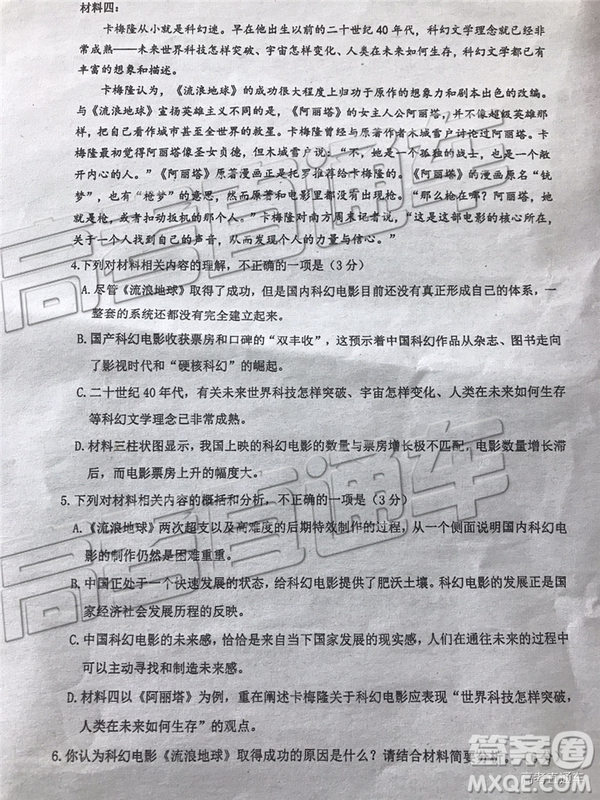 材料四：
卡梅隆从小就是科幻迷。早在他出生以前的二十世纪 40 年代，科幻文学理念就已经非
常成熟——未来世界科技怎样突破、宇宙怎样变化、人类在未来如何生存，科幻文学都已有
丰富的想象和描述。
卡梅隆认为，《流浪地球》的成功很大程度上归功于原作的想象力和剧本出色的改编。
与《流浪地球》宣扬英雄主义不同的是，《阿丽塔》的女主人公阿丽塔，并不像超级英雄那
样，把自己看作城市甚至全世界的救星。卡梅隆曾经与原著作者木城雪户讨论过阿丽塔。卡
梅隆最初觉得阿丽塔像圣女贞德，但木城雪户说：“不，她是一个孤独的战士，也是一个敢
开内心的人。”《阿丽塔》原著漫画正是托罗推荐给卡梅隆的。《阿丽塔》的漫画原名“铳
梦”，也有“枪梦”的意思，然而原著和电影里都没有出现枪。“那么枪在哪？阿丽塔，她
就是枪，却没有扣动扳机的那个人。”卡梅隆对南方周末记者说，“这是这部电影的核心所在，
关于一个人找到自己的声音，从而发现自己的力量与信心。”
4.下列对材料相关内容的理解，不正确的一项是（3 分）
A. 尽管《流浪地球》取得了成功，但是国内科幻电影目前还没有真正形成自己的体系，一
整套的系统还都没有完全建立起来。
B. 国产科幻电影收获票房和口碑的“双丰收”，这预示着中国科幻作品从杂志、图书走向
了影视时代和“硬核科幻”的崛起。
C. 二十世纪 40 年代，有关未来世界科技怎样突破、宇宙怎样变化、人类在未来如何生存
等科幻文学理念已非常成熟。
D. 材料三柱状图显示，我国上映的科幻电影的数量与票房增长极不匹配，数量增长迟
后，而电影票房上升的幅度大。
5. 下列对材料相关内容的概括和分析，不正确的一项是（3 分）
A.《流浪地球》两次超支以及高难度的后期特效制作的过程，从一个侧面说明国内科幻电
影的制作仍然是困难重重。
B. 中国正处于一个快速发展的状态，给科幻电影的发展提供了肥沃土壤。科幻电影是国
家经济社会发展历程的反映。
C. 中国科幻电影的未来感，恰恰是来自当下国家发展的现实感，人们在通往未来的过程中
可以主动寻找和制造未来感。
D. 材料四以《阿丽塔》为例，重在阐述卡梅隆关于科幻电影应表现“世界科技怎样突破、
人类在未来如何生存”的观点。
6.你认为科幻电影《流浪地球》取得成功的原因是什么？请结合材料简要分析。
高考直通车
答案圈
MXQE.COM